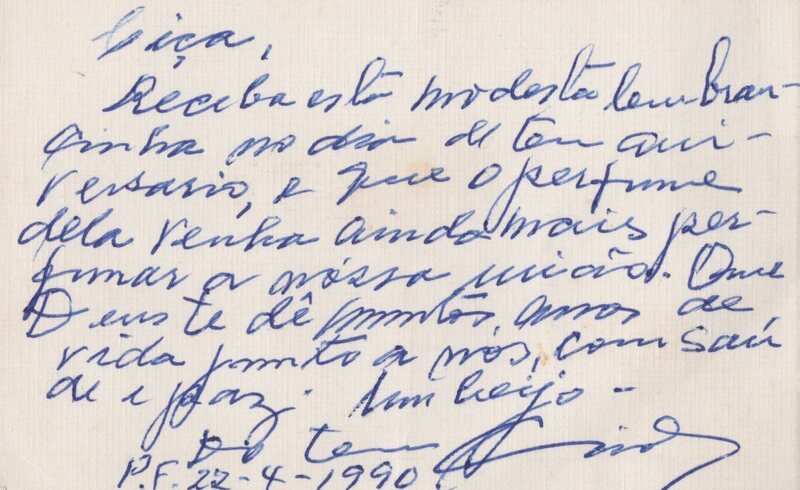 Ciça,
Receba està modestà lembran-
çinha no dia de teu ani-
versario, e que o perfume
dela venha ainda mais per-
fumar a nóssa união. Que
Deus te dê muitos anos de
vida junto a nós, com saú
de e paz. Um beijo -
Do teu
P.F. 22-4-1990.